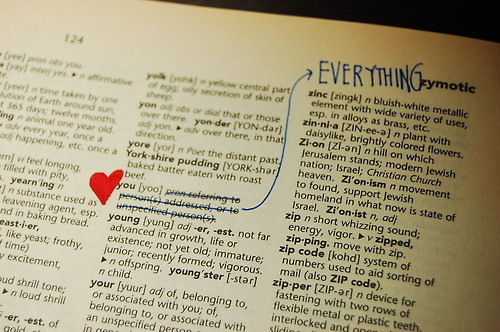 124
[yee] pron obs you.
[yay] interj yes. ▸ n affirmative
[yeer] n time taken by one
lution of Earth around sun,
365 days; twelve months.
ing n animal one year old.
adv every year, once a
adj happening, etc. once a
vi feel longing,
filled with pity,
yearn'ing n
n substance used as
leavening agent, esp.
and in baking bread.
east-i-er,
like yeast; frothy,
time)
y excitement,
oud shrill tone;
n loud shrill
-i-er, -est. of
yolk [yohk] n yellow central part
of egg; oily secretion of skin of
yon adj obs or dial that or those
over there. yon-der [YON-dər]
adj yon. ▸ adv over there, in that
direction.
yore [yor] n Poet the distant past.
York-shire pudding [YORK-shər]
baked batter eaten with roast
beef.
you [yoo] pron referring to
person(s) addressed, or to
unspecified person(s)
young [yung] adj -er, -est. not far
advanced in growth, life or
existence; not yet old; immature;
junior; recently formed; vigorous.
▸ n offspring. young'ster [-stər]
n child.
your [yuur] adj of, belonging to,
or associated with you; of,
belonging to, or associated with
an unspecified person
EVERYTHING zymotic
zinc [zingk] n bluish-white metallic
element with wide variety of uses,
esp. in alloys as brass, etc.
zin-ni-a [ZIN-ee-ə] n plant with
daisylike, brightly colored flowers.
Zi-on [ZI-ən] n hill on which
Jerusalem stands; modern Jewish
nation; Israel; Christian Church
heaven. Zi'on-ism n movement
to found, support Jewish
homeland in what now is state of
Israel. Zi'on-ist n, adj
zip n short whizzing sound;
energy, vigor. ▸ v zipped,
zip-ping. move with zip.
zip code [kohd] system of
numbers used to aid sorting of
mail (also ZIP code).
zip-per [ZIP-ər] n device for
fastening with two rows of
flexible metal or plastic teeth,
interlocked and